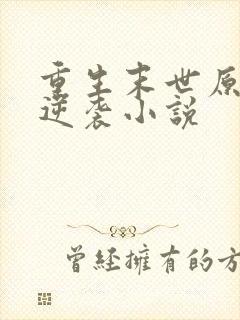 重生末世原
逆袭小說
曾經擁有的方